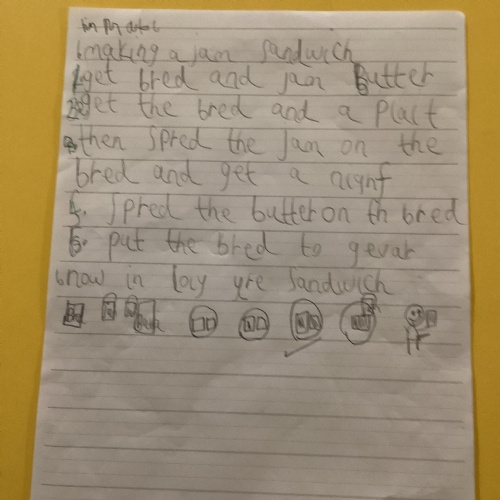 making a jam sandwich
1. get bred and jam Butter
2. get the bred and a plact
3. then spred the jam on the
bred and get a nighf
4. spred the butter on th bred
5. put the bred to gevar
6 now in loiy yre sandwich